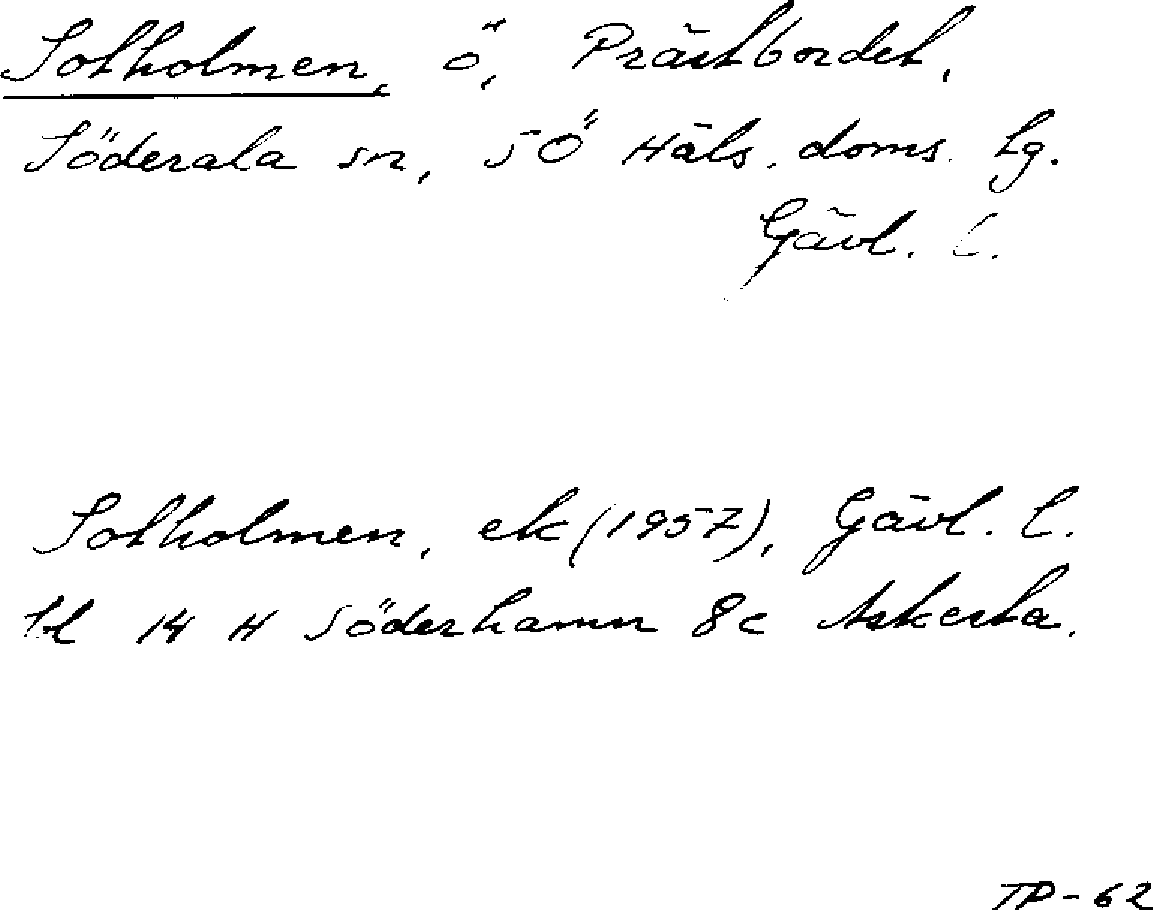 Sotholmen, ö, Prästbordet,
Söderala sn, SÖ Häls. doms. lg.
Gävl. l.
Sotholmen, ek (1957), Gävl. l.
bl 14 H Söderhamn 8c Askesta.
TP-62